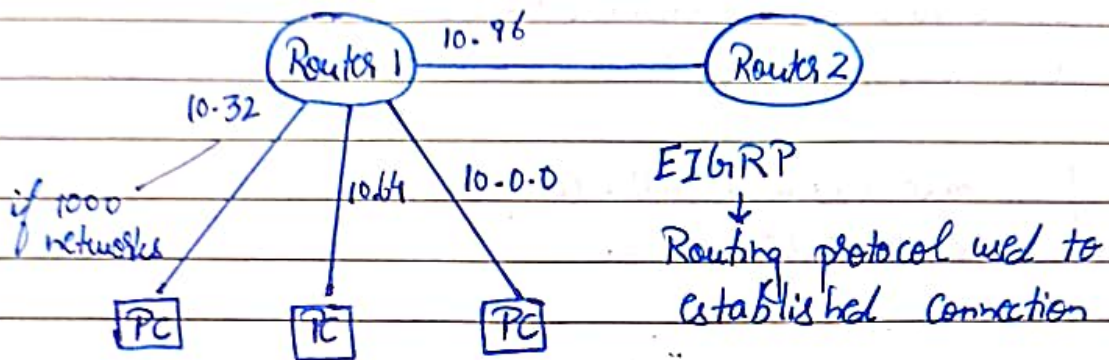 10.96
Router 1
Router 2
10.32
if 1000
networks
10.64
10.0.0
EIGRP
Routing protocol used to
established connection
PC
PC
PC